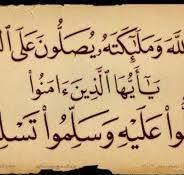 للَّهَ وَمَلَٰٓئِكَتَهُۥ يُصَلُّونَ عَلَى ٱل
يَٰٓأَيُّهَا ٱلَّذِينَ ءَامَنُوا۟
وا۟ عَلَيْهِ وَسَلِّمُوا۟ تَسْلِ